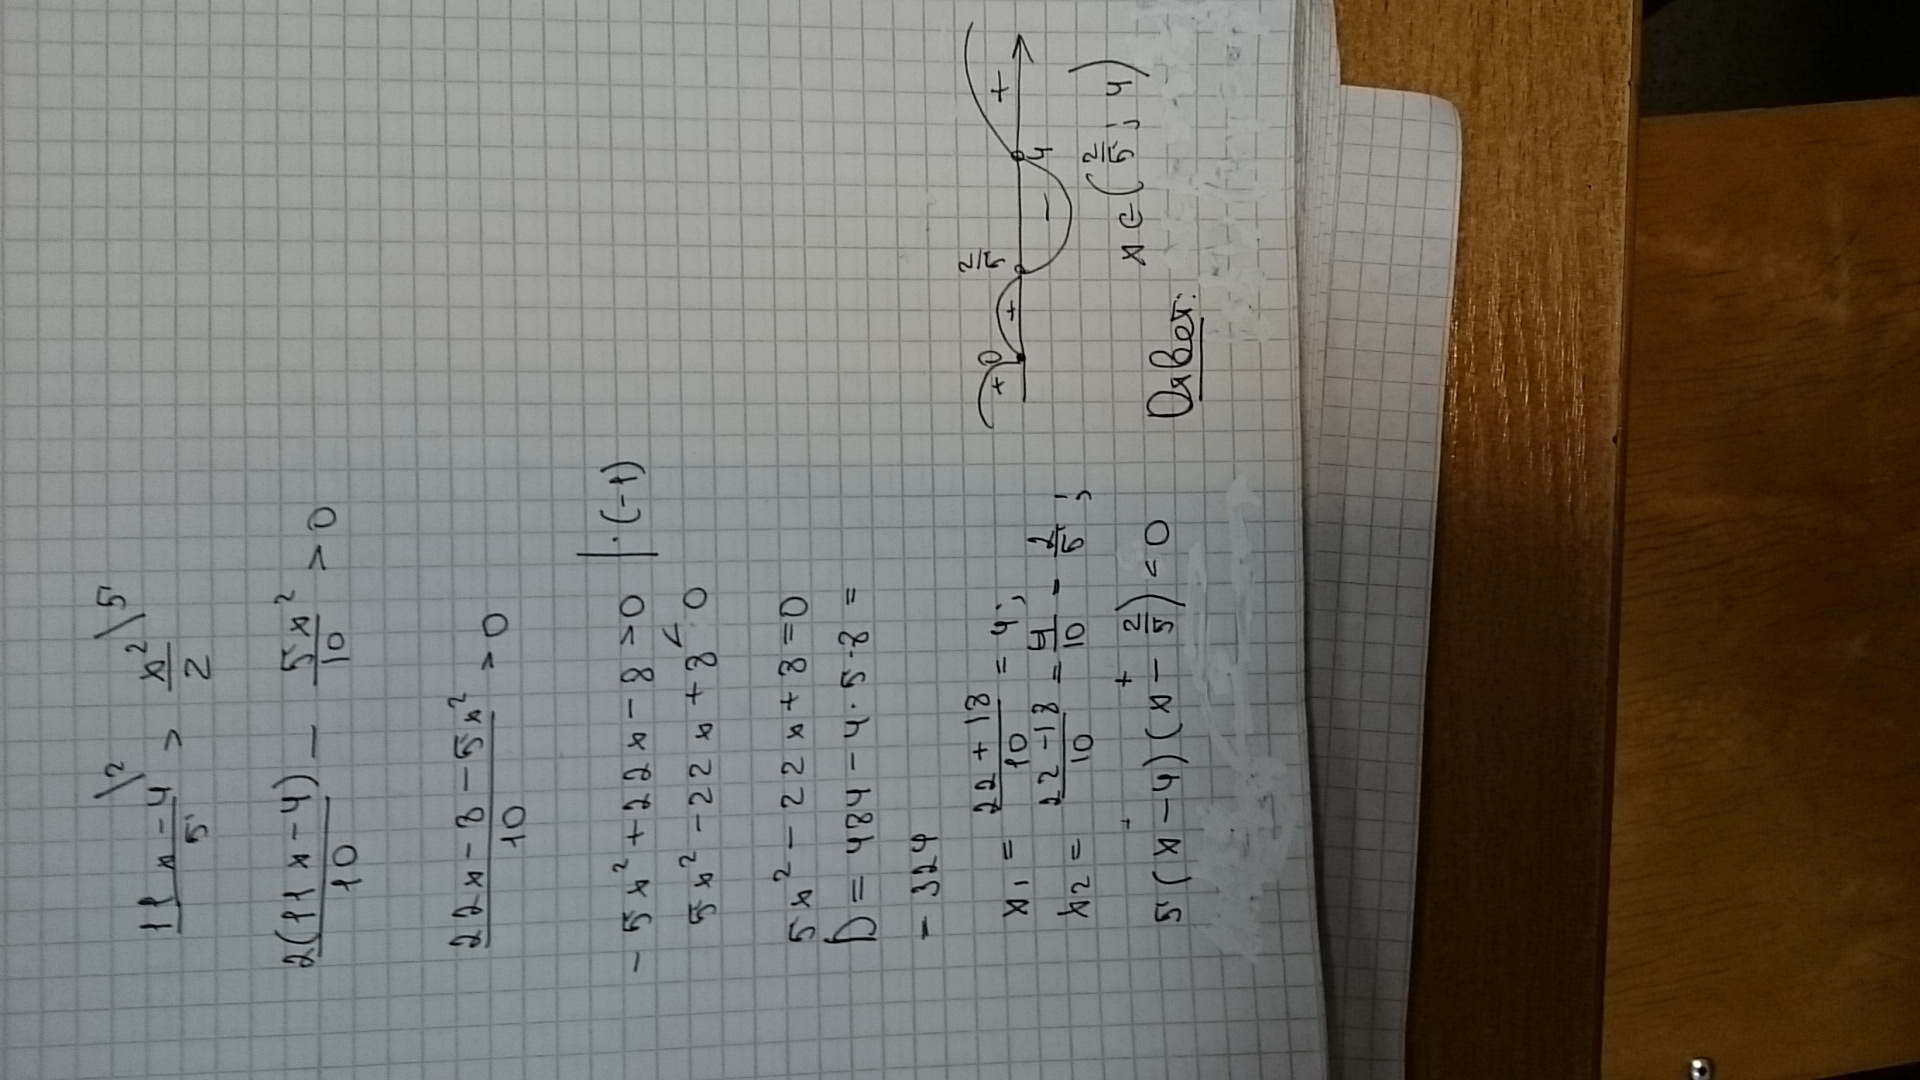 \2 \5
11x-4/5 > x²/2
2(11x-4)/10 - 5x²/10 > 0
22x-8-5x²/10 > 0
-5x²+22x-8>0 |·(-1)
5x²-22x+8<0
5x²-22x+8=0
D=484-4·5·8=
=324
x1=22+18/10=4;
x2=22-18/10=4/10=2/5;
+ +
5(x-4)(x-2/5)<0
+ 0 + 2/5 - 4 +
x∈(2/5; 4)
Ответ: